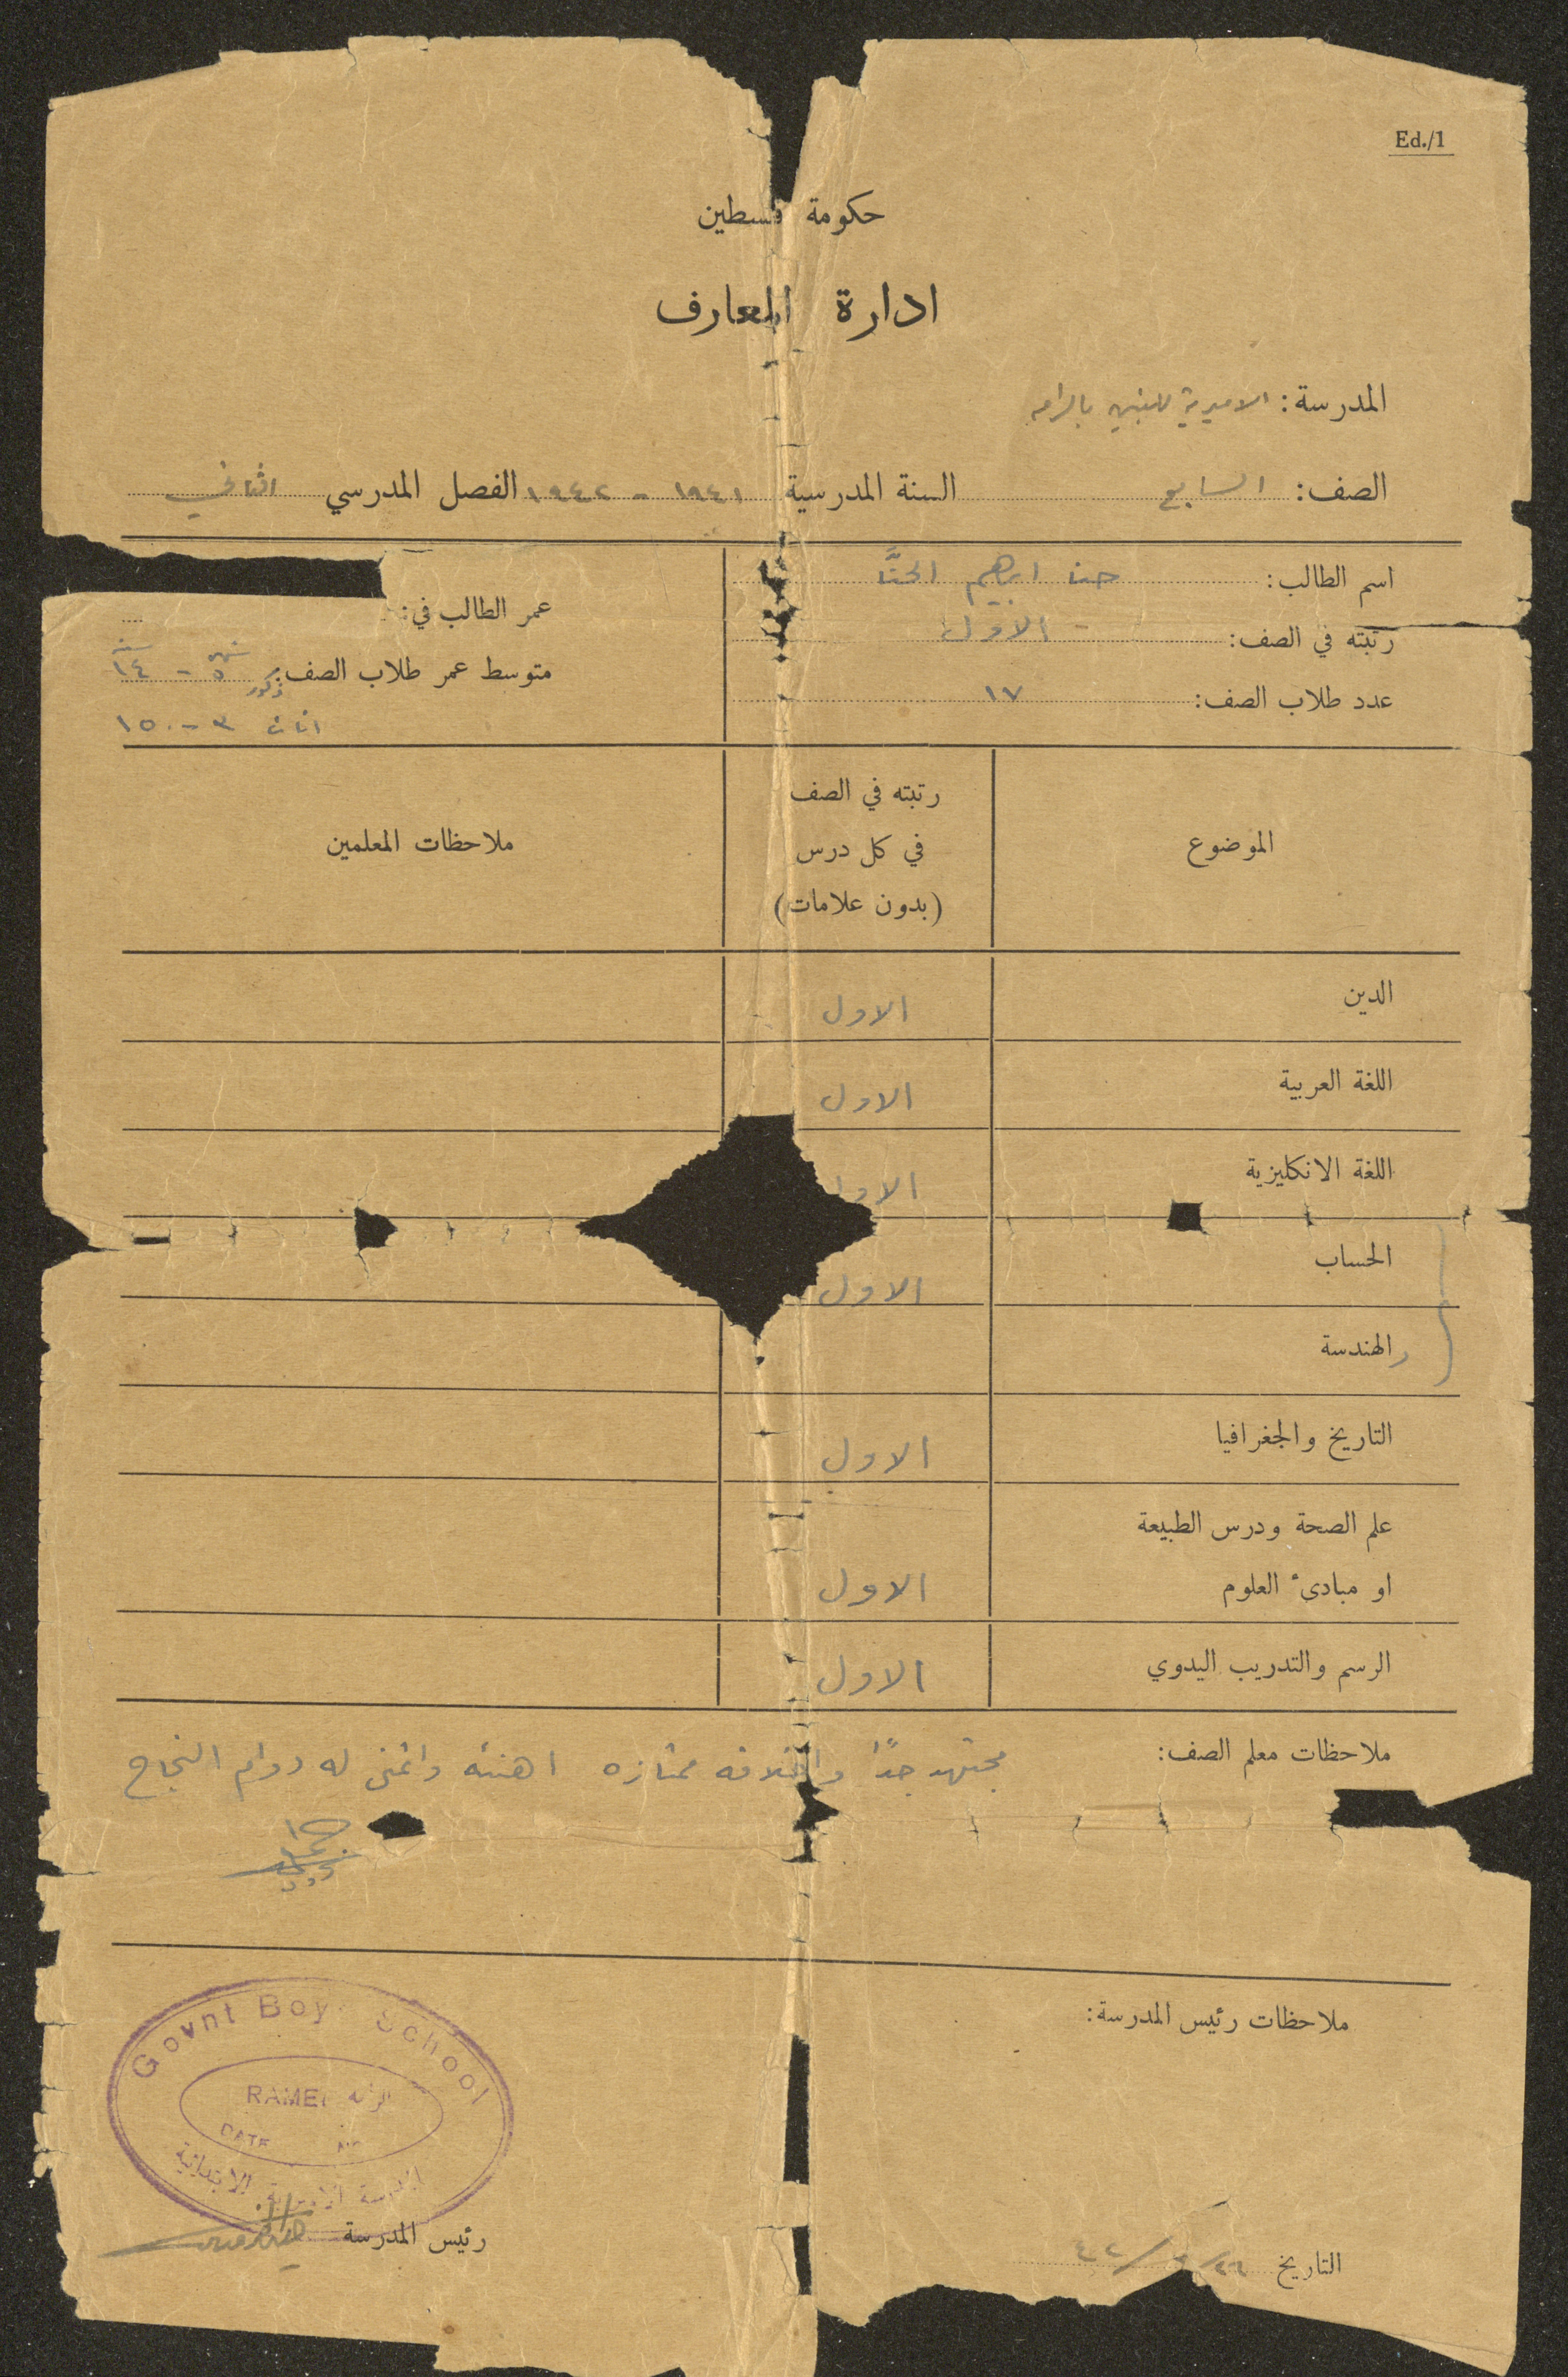 Ed./1
حكومة فلسطين
ادارة المعارف
المدرسة: الاميرية للبنين بالرامه
الصف: السابع السنة المدرسية ١٩٤١ - ١٩٤٢ الفصل المدرسي الثاني
اسم الطالب: حنا ابرهيم الحنَّا
رتبته في الصف: - الاول
عدد طلاب الصف: ١٧
عمر الطالب في:
متوسط عمر طلاب الصف: ذكور ٥ شهر - ١٤ سنة
اناث ٣ - ١٥
الموضوع
رتبته في الصف
في كل درس
(بدون علامات)
ملاحظات المعلمين
الدين الاول
اللغة العربية الاول
اللغة الانكليزية الاول
الحساب الاول
والهندسة
التاريخ والجغرافيا الاول
علم الصحة ودرس الطبيعة
او مبادئ العلوم الاول
الرسم والتدريب اليدوي الاول
ملاحظات معلم الصف: مجتهد جدًا واخلاقه ممتازه اهنئه واتمنى له دوام النجاح
ملاحظات رئيس المدرسة:
Govnt Boy School
RAMEH الرامة
DATE No
المدرسة الاميرية الابتدائية
رئيس المدرسة
التاريخ ٢٦/ /٤٢